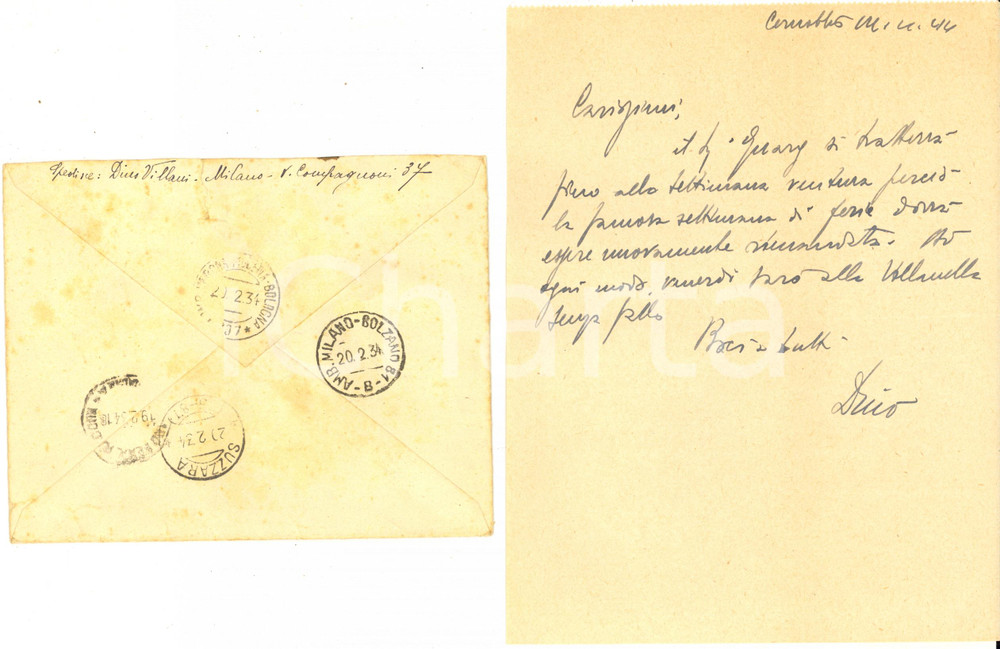 Spedisce: Dino Villani - Milano - V. Compagnoni 37
BOLOGNA
20.2.34
AMB. MILANO-BOLZANO 81
20.2.34
-B-
19.2.34
20.2.34
SUZZARA
Charta
Cernobbio 44
Carissimi,
il si tratterrà
fino alla settimana ventura perciò
la famosa settimana di ferie dovrà
essere nuovamente rimandata. Ad
ogni modo, venerdì sarò alla Vallanella
senza fallo
Baci a tutti
Dino